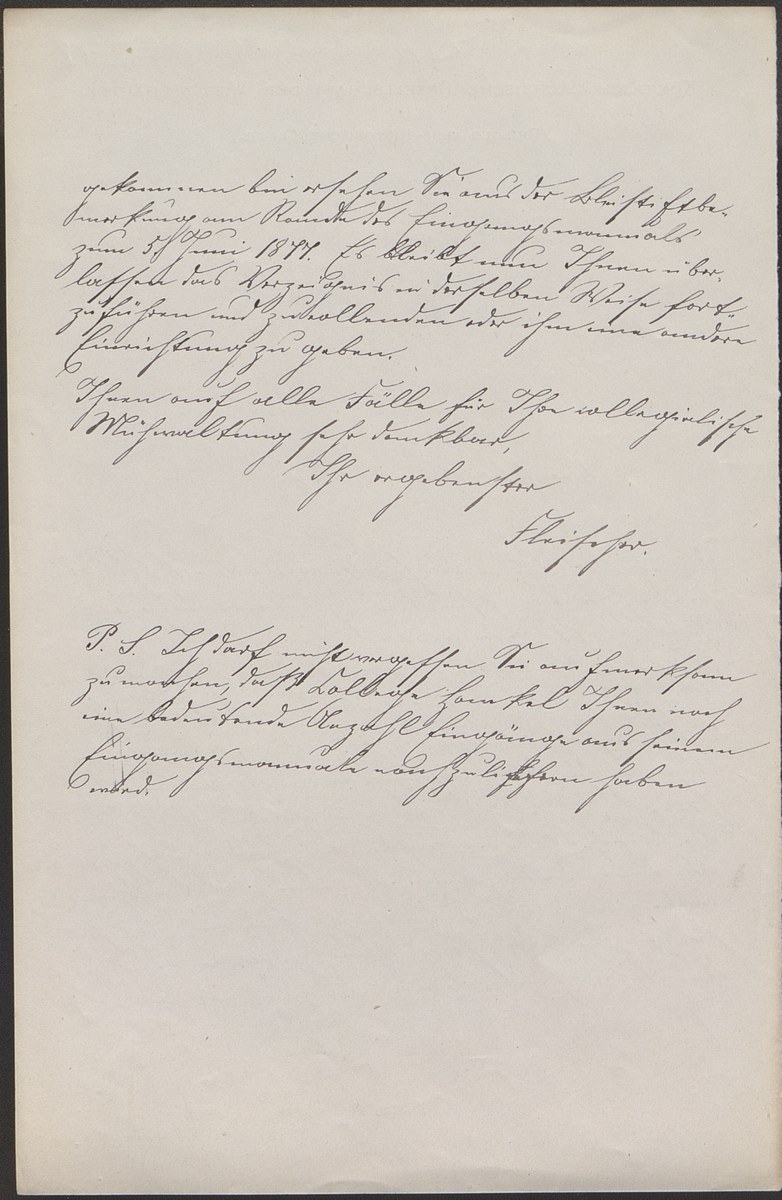 gekommen bin ersehen Sie aus der Bleistiftbe-
merkung am Rande des Eingangsmanuals
zum 5. Juni 1877. Es bleibt nun Ihnen über-
lassen das Verzeichnis in derselben Weise fort-
zuführen und zu vollenden oder ihm eine andere
Einrichtung zu geben.
Ihnen auf alle Fälle für Ihre collegialische
Mühwaltung sehr dankbar,
Ihr ergebenster
Fleischer.
P. S. Ich darf nicht vergessen Sie aufmerksam
zu machen, daß College Hankel Ihnen noch
eine bedeutende Anzahl Eingänge aus seinem
Eingangsmanuale nachzuliefern haben
wird.